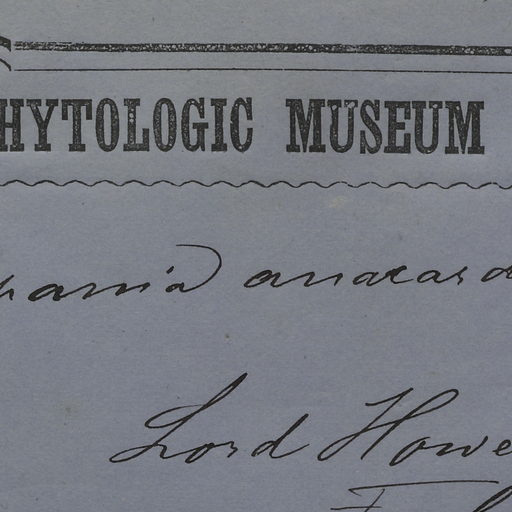 HYTOLOGIC MUSEUM
pania anacard
Lord Howe